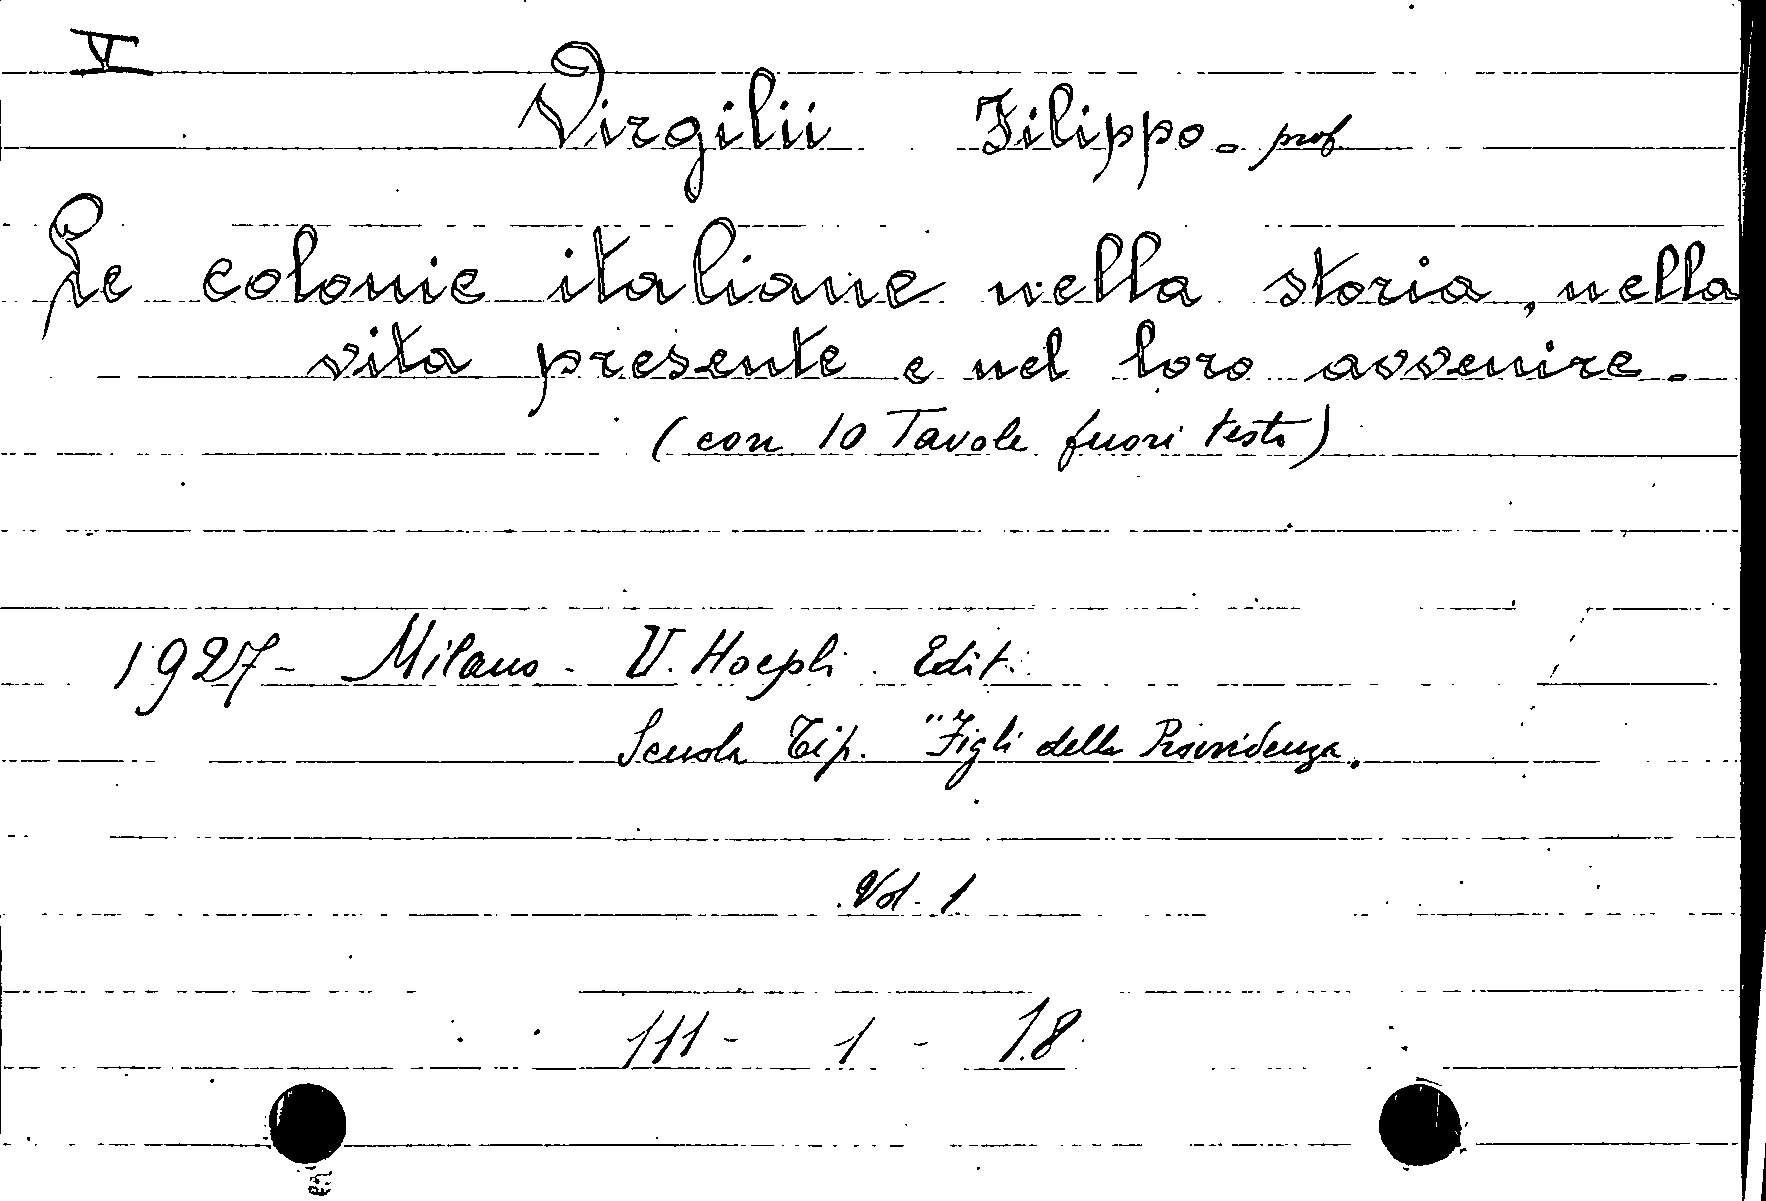 V
Virgilii Filippo - prof
Le colonie italiane nella storia, nella
vita presente e nel loro avvenire.
(con 10 Tavole fuori testo)
1927 - Milano - U. Hoepli Edit.
Scuola Tip. "Figli della Provvidenza.
Vol. 1
111 - 1 - 18